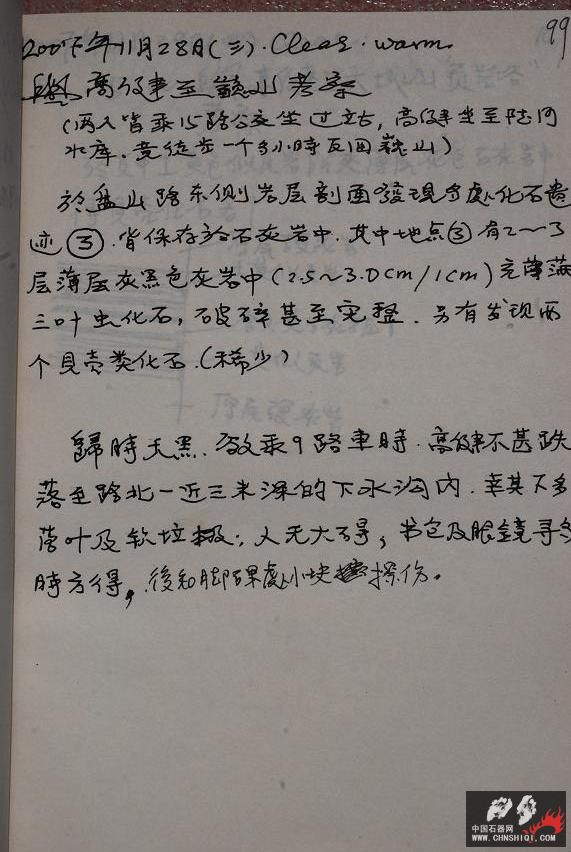 99
2007年11月28日(三).Clear.warm.
與高俊车至巍山考察
(两人皆乘15路公交坐过站,高俊坐至陡河
水库.竟徒步一个多小時反回巍山)
於盘山路东侧岩层剖面發現多處化石遗
迹③.皆保存於石灰岩中.其中地点③有2~3
层薄层灰黑色灰岩中(2.5~3.0cm/1cm)充满
三叶虫化石,破碎甚至完整.另有发现两
个貝壳类化石.(稀少)
歸時天黑.乘9路車時.高俊不甚跌
落至路北一近三米深的下水沟内.幸其下多
落叶及软垃极.人无大碍,书包及眼鏡寻多
時方得,後知脚踝處小块擦伤。
中国石器网
WWW.CHNSHIQI.COM